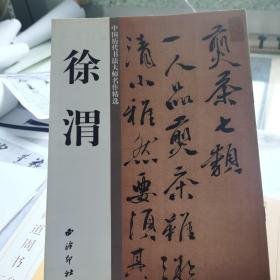 中国历代书法大师名作精选
徐渭
煎茶七類
一人品煎茶雖微
清小雅然要須其
西泠印社
道周书